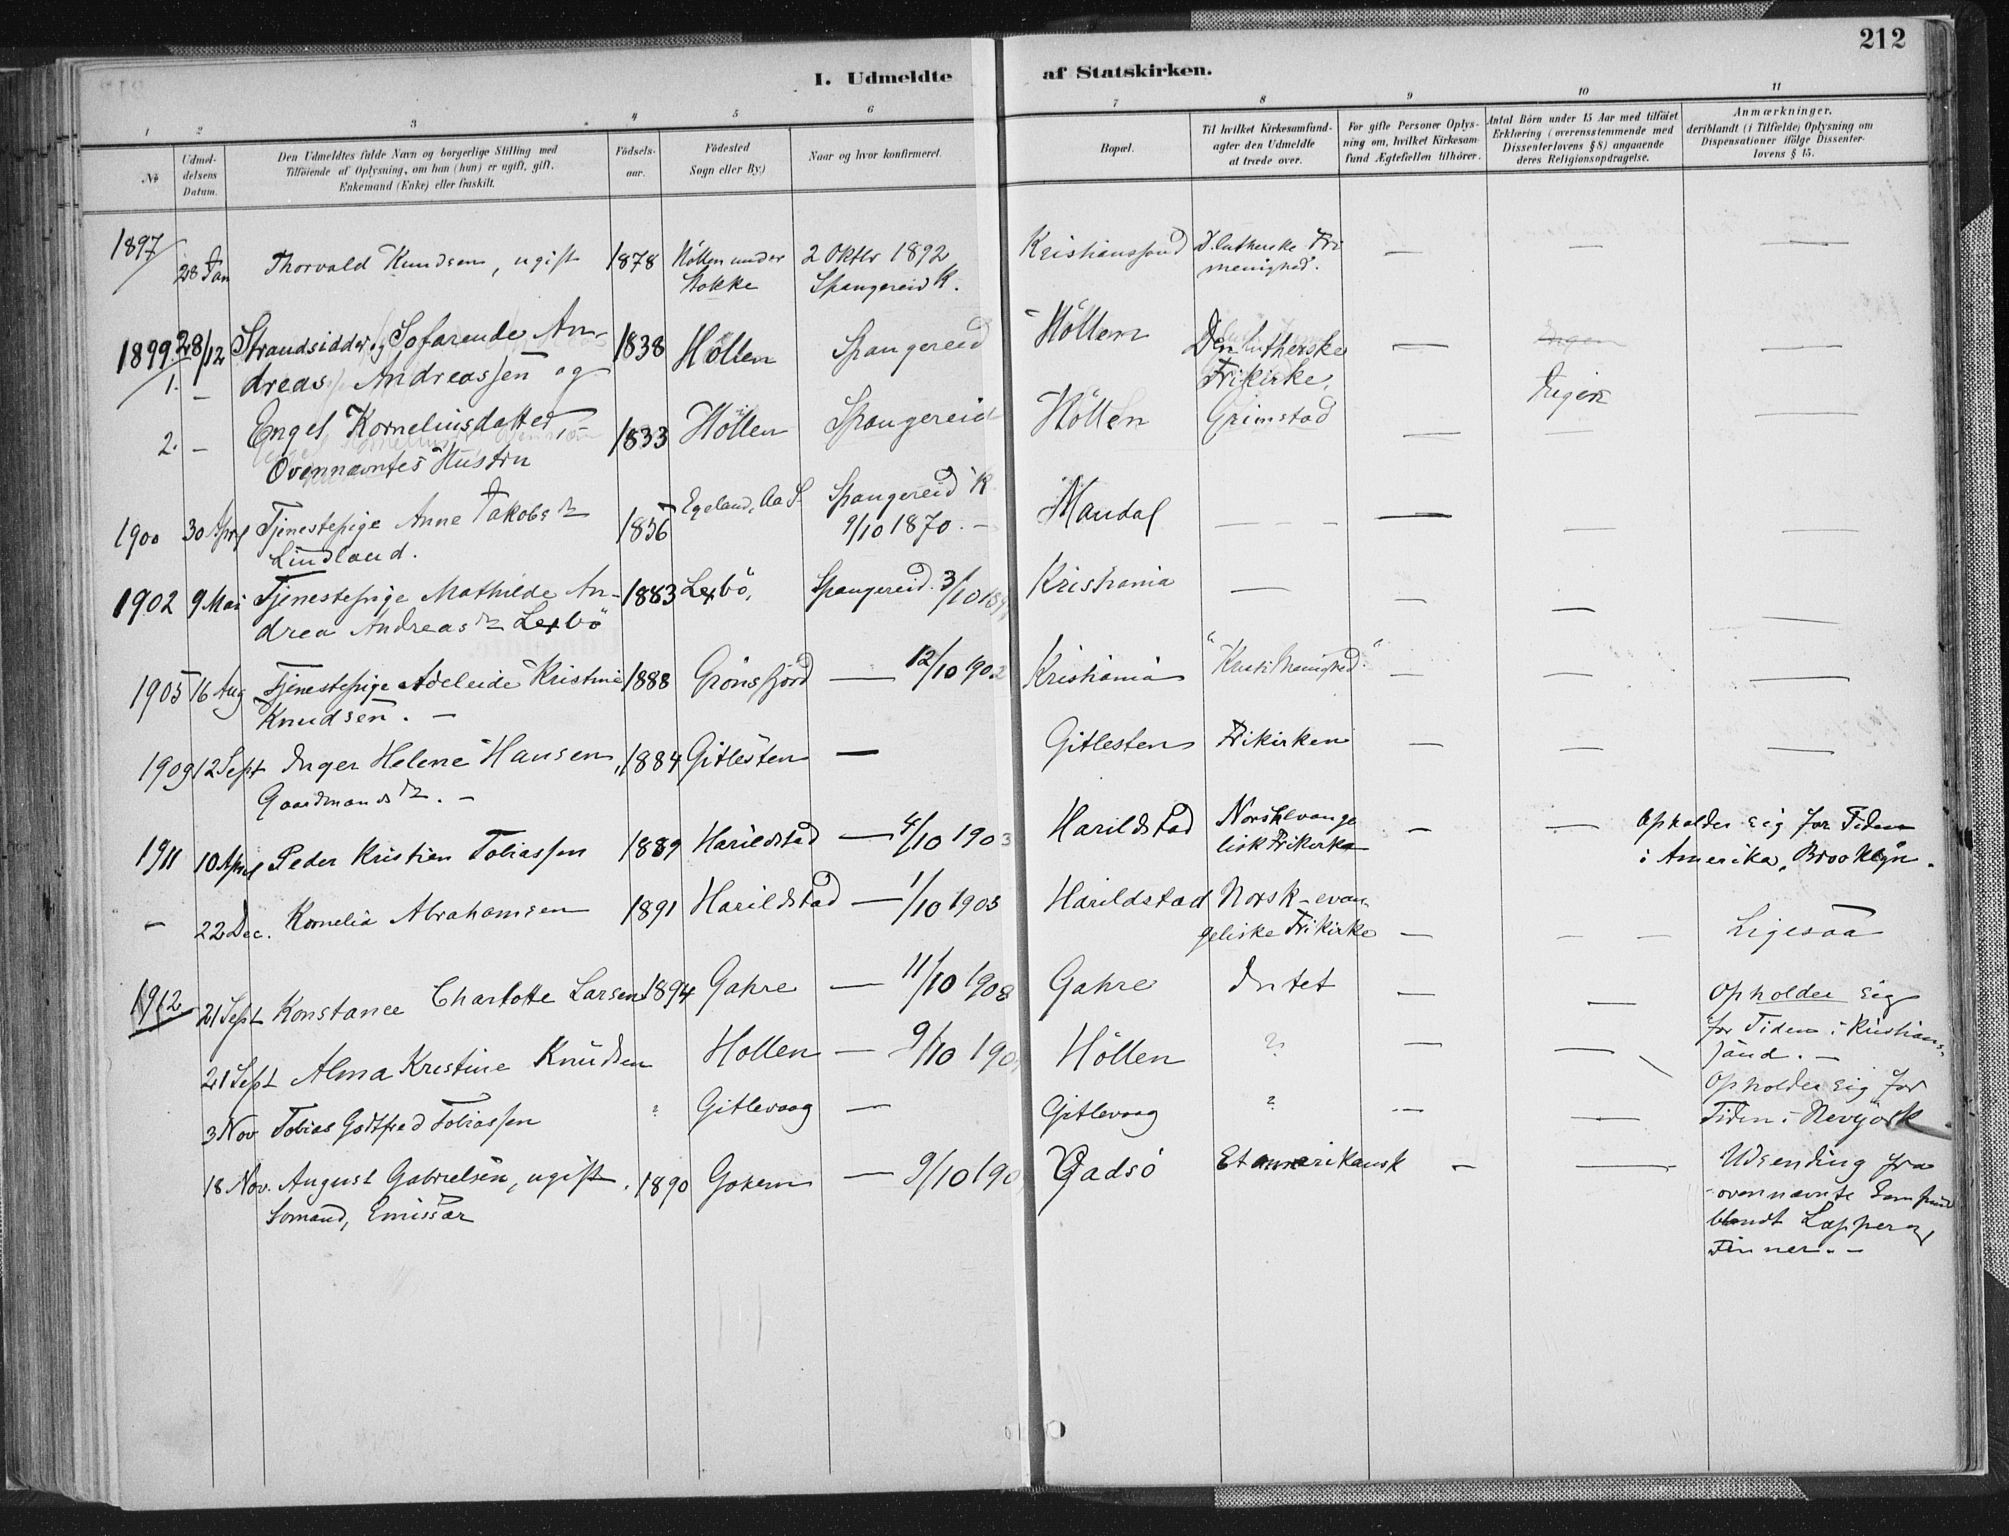 212
I. Udmeldte af Statskirken.
1 2 3 4 5 6 7 8 9 10 11
№
Udmeldelsens Datum.
Den Udmeldtes fulde Navn og borgerlige Stilling med
Tilföiende af Oplysning, om han (hun) er ugift, gift,
Enkemand (Enke) eller fraskilt.
Födselsaar.
Födested
Sogn eller By.)
Naar og hvor konfirmeret.
Bopæl.
Til hvilket Kirkesamfund-
agter den Udmeldte
at træde over.
For gifte Personer Oplys-
ning om, hvilket Kirkesam-
fund Ægtefællen tilhörer.
Antal Börn under 15 Aar med tilföiet
Erklæring (overensstemmende med
Dissenterlovens § 8) angaaende
deres Religionsopdragelse.
Anmærkninger,
deriblandt (i Tilfælde) Oplysning om
Dispensationer ifölge Dissenter-
lovens § 15.
1897 28 Jan Thorvald Knudsen, ugift 1878 Höllen under 2 Oktbr 1892 Kristianssand D lutherske Fri — — —
Stokke Spangereid K. menighed.
1899 28/12 Strandsidder og Sofarende An- 1838 Höllen Spangereid Höllen Den lutherske — —
1. — dreas Andreassen og Frikirke, Ingen
2. — Engel Kornelius datter 1833 Höllen Spangereid Höllen Grimstad — — —
Ovennævntes Hustru
1900 30 April Tjenestepige Anne Jakobs dr 1856 Egeland, Aa S. Spangereid K Mandal — — — — — —
Lindland. 9/10 1870. —
1902 9 Mai Tjenestepige Mathilde An- 1883 Lexbö, Spangereid 3/10 Kristiania — — — —
drea Andreas dr Lexbö
1905 16 Aug Tjenestepige Adeleide Kristine 1888 Grönsfjord — 12/10 1902 Kristiania — — —
Knudsen. —
1909 12 Sept Inger Helene Hansen, 1884 Gitlesten — Gitlesten Frikirken — — —
Gaardmands dr. —
1911 10 April Peder Kristien Tobiassen 1889 Harildstad — 4/10 1903 Harildstad Norsk evange — — Opholder sig for Tiden
lisk Frikirke i Amerika, Brooklyn.
— 22 Dec. Kornelia Abrahamsen 1891 Harildstad — 1/10 1905 Harildstad Norsk-evan
geliske Frikirke — — — Ligesaa
1912 21 Sept Konstance Charlotte Larsen 1894 Gahre — 11/10 1908 Gahre Intet — — Opholder sig
for Tiden i Kristians-
21 Sept Alma Kristine Knudsen Hollen — 9/10 190 Höllen ? — — sand. —
Opholder sig for
3 Nov Tobias Godtfred Tobiassen ? Gitlevaag — Gitlevaag ? — — Tiden i Nevyörk
18 Nov. August Gabrielsen, ugift. 1890 — 9/10 190 Vadsö Et amerikansk — — Udsending fra
Somand, Emissær ovennævnte Samfund
blandt Lapper og
Finner. —